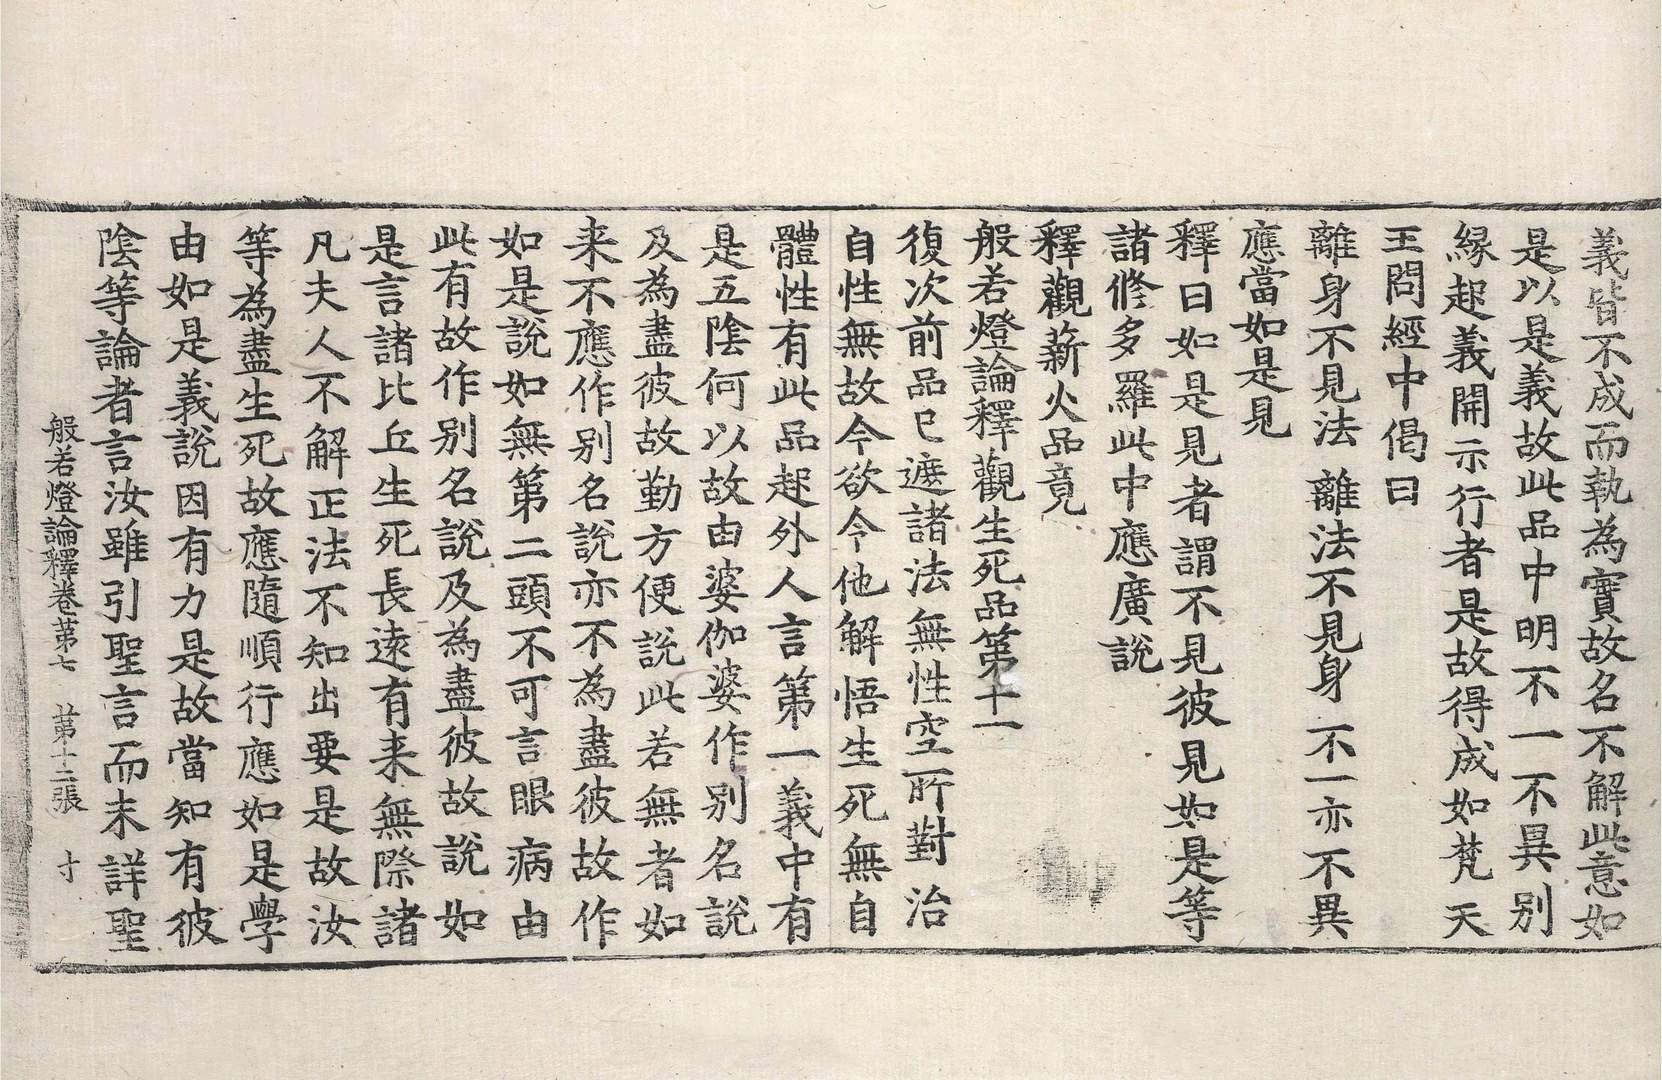 義皆不成而執為實故名不解此意如
是以是義故此品中明不一不異別
緣起義開示行者是故得成如梵天
王問經中偈曰
離身不見法 離法不見身 不一亦不異
應當如是見
釋曰如是見者謂不見彼見如是等
諸修多羅此中應廣說
釋觀薪火品竟
般若燈論釋觀生死品第十一
復次前品已遮諸法無性空所對治
自性無故今欲令他解悟生死無自
體性有此品起外人言第一義中有
是五陰何以故由婆伽婆作別名說
及為盡彼故勤方便說此若無者如
来不應作別名說亦不為盡彼故作
如是說如無第二頭不可言眼病由
此有故作別名說及為盡彼故說如
是言諸比丘生死長遠有来無際諸
凡夫人不解正法不知出要是故汝
等為盡生死故應隨順行應如是學
由如是義說因有力是故當知有彼
陰等論者言汝雖引聖言而未詳聖
般若燈論釋卷第七 第十二張 寸